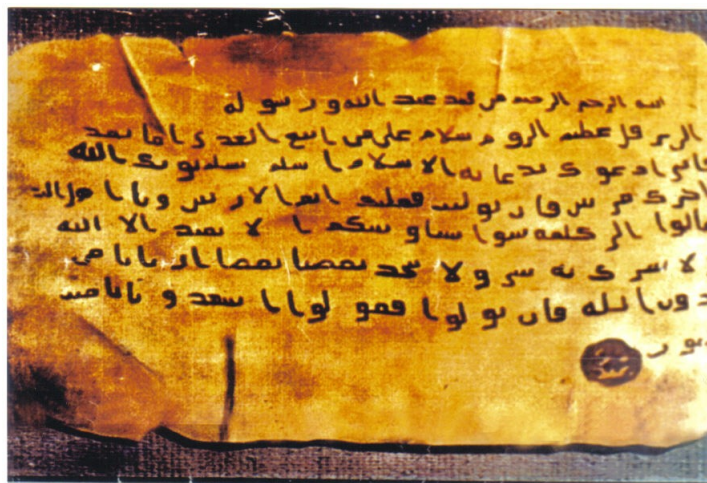 الله الرحمن الرحيم من محمد عبد الله ورسوله
الى هرقل عظيم الروم سلام على من اتبع الهدى اما بعد
فانى ادعوك بدعاية الاسلام اسلم تسلم يوتك الله
اجرك مرتين فان توليت فعليك اثم الاريسيين ويا اهل الكتاب
تعالوا الى كلمة سوا بيننا وبينكم الا نعبد الا الله
ولا نشرك به شيا ولا يتخذ بعضنا بعضا اربابا من
دون الله فان تولوا فقولوا اشهدوا بانا مسلـ
مون